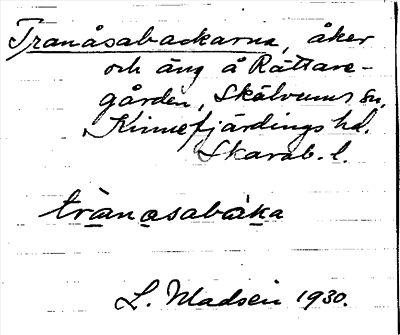 Tranåsabackarna, åker
och äng å Rättare-
gården, Skälvums sn,
Kinnefjärdings hd.
Skarab. l.
trànasabàka
L. Madsén 1930.